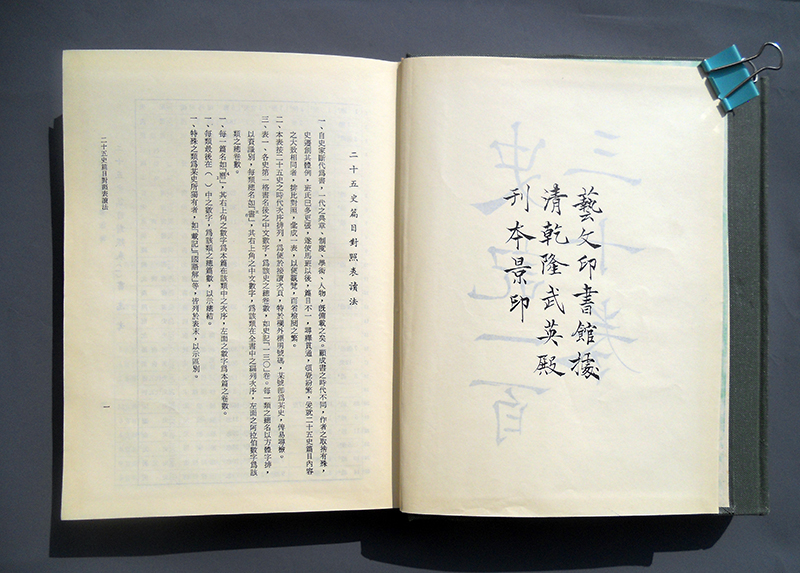 藝文印書館據
清乾隆武英殿
刊本景印
二十五史篇目對照表讀法
一、自史家斷代爲書，一代之典章、制度、學術、人物，既備載之矣。顧成書之時代不同，作者之取捨有殊，
史遷創其體例，班氏已多更張，遂使馬班以後，篇目不一，尋繹貫通，頗覺紛繁，爰就二十五史篇目內容
之大致相同者，排比對照，彙成一表，以便觀覽，而省檢閱之繁。
二、本表按二十五史之時代次序排列，爲便於接讀次頁，特於欄外標明號碼，某號即爲某史，俾易尋檢。
三、表一、各史第一格書名後之中文數字，爲該史之總卷數，如史記「一三○」卷。每一類之總名以方體字排，
以資識別，每類總名如「書」，其右上角之中文數字，爲該類在全書中之編列次序，左面之阿拉伯數字爲該
類之總卷數。
一、每一篇名如「曆」，其右上角之數字爲本篇在該類中之次序，左面之數字爲本篇之卷數。
一、每類最後在（ ）中之數字，爲該類之總篇數，以示總結。
一、特殊之類爲某史所獨有者，如「載記」「國語解」等，皆列於表末，以示區別。
二十五史篇目對照表讀法
一